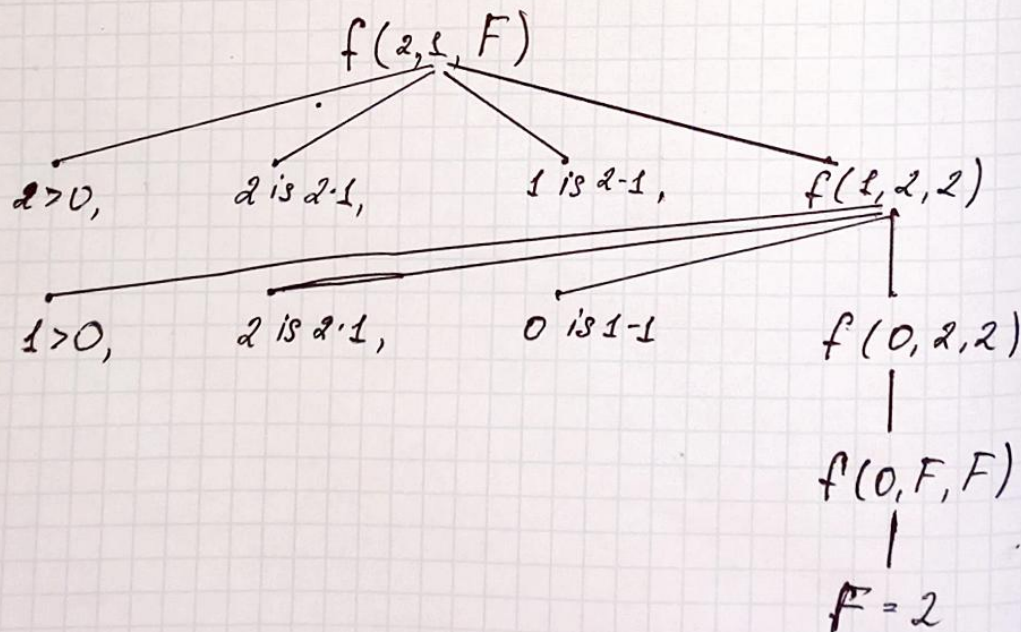 f(2,1,F)
2>0, 2 is 2·1, 1 is 2-1, f(1,2,2)
1>0, 2 is 2·1, 0 is 1-1 f(0,2,2)
f(0,F,F)
F = 2